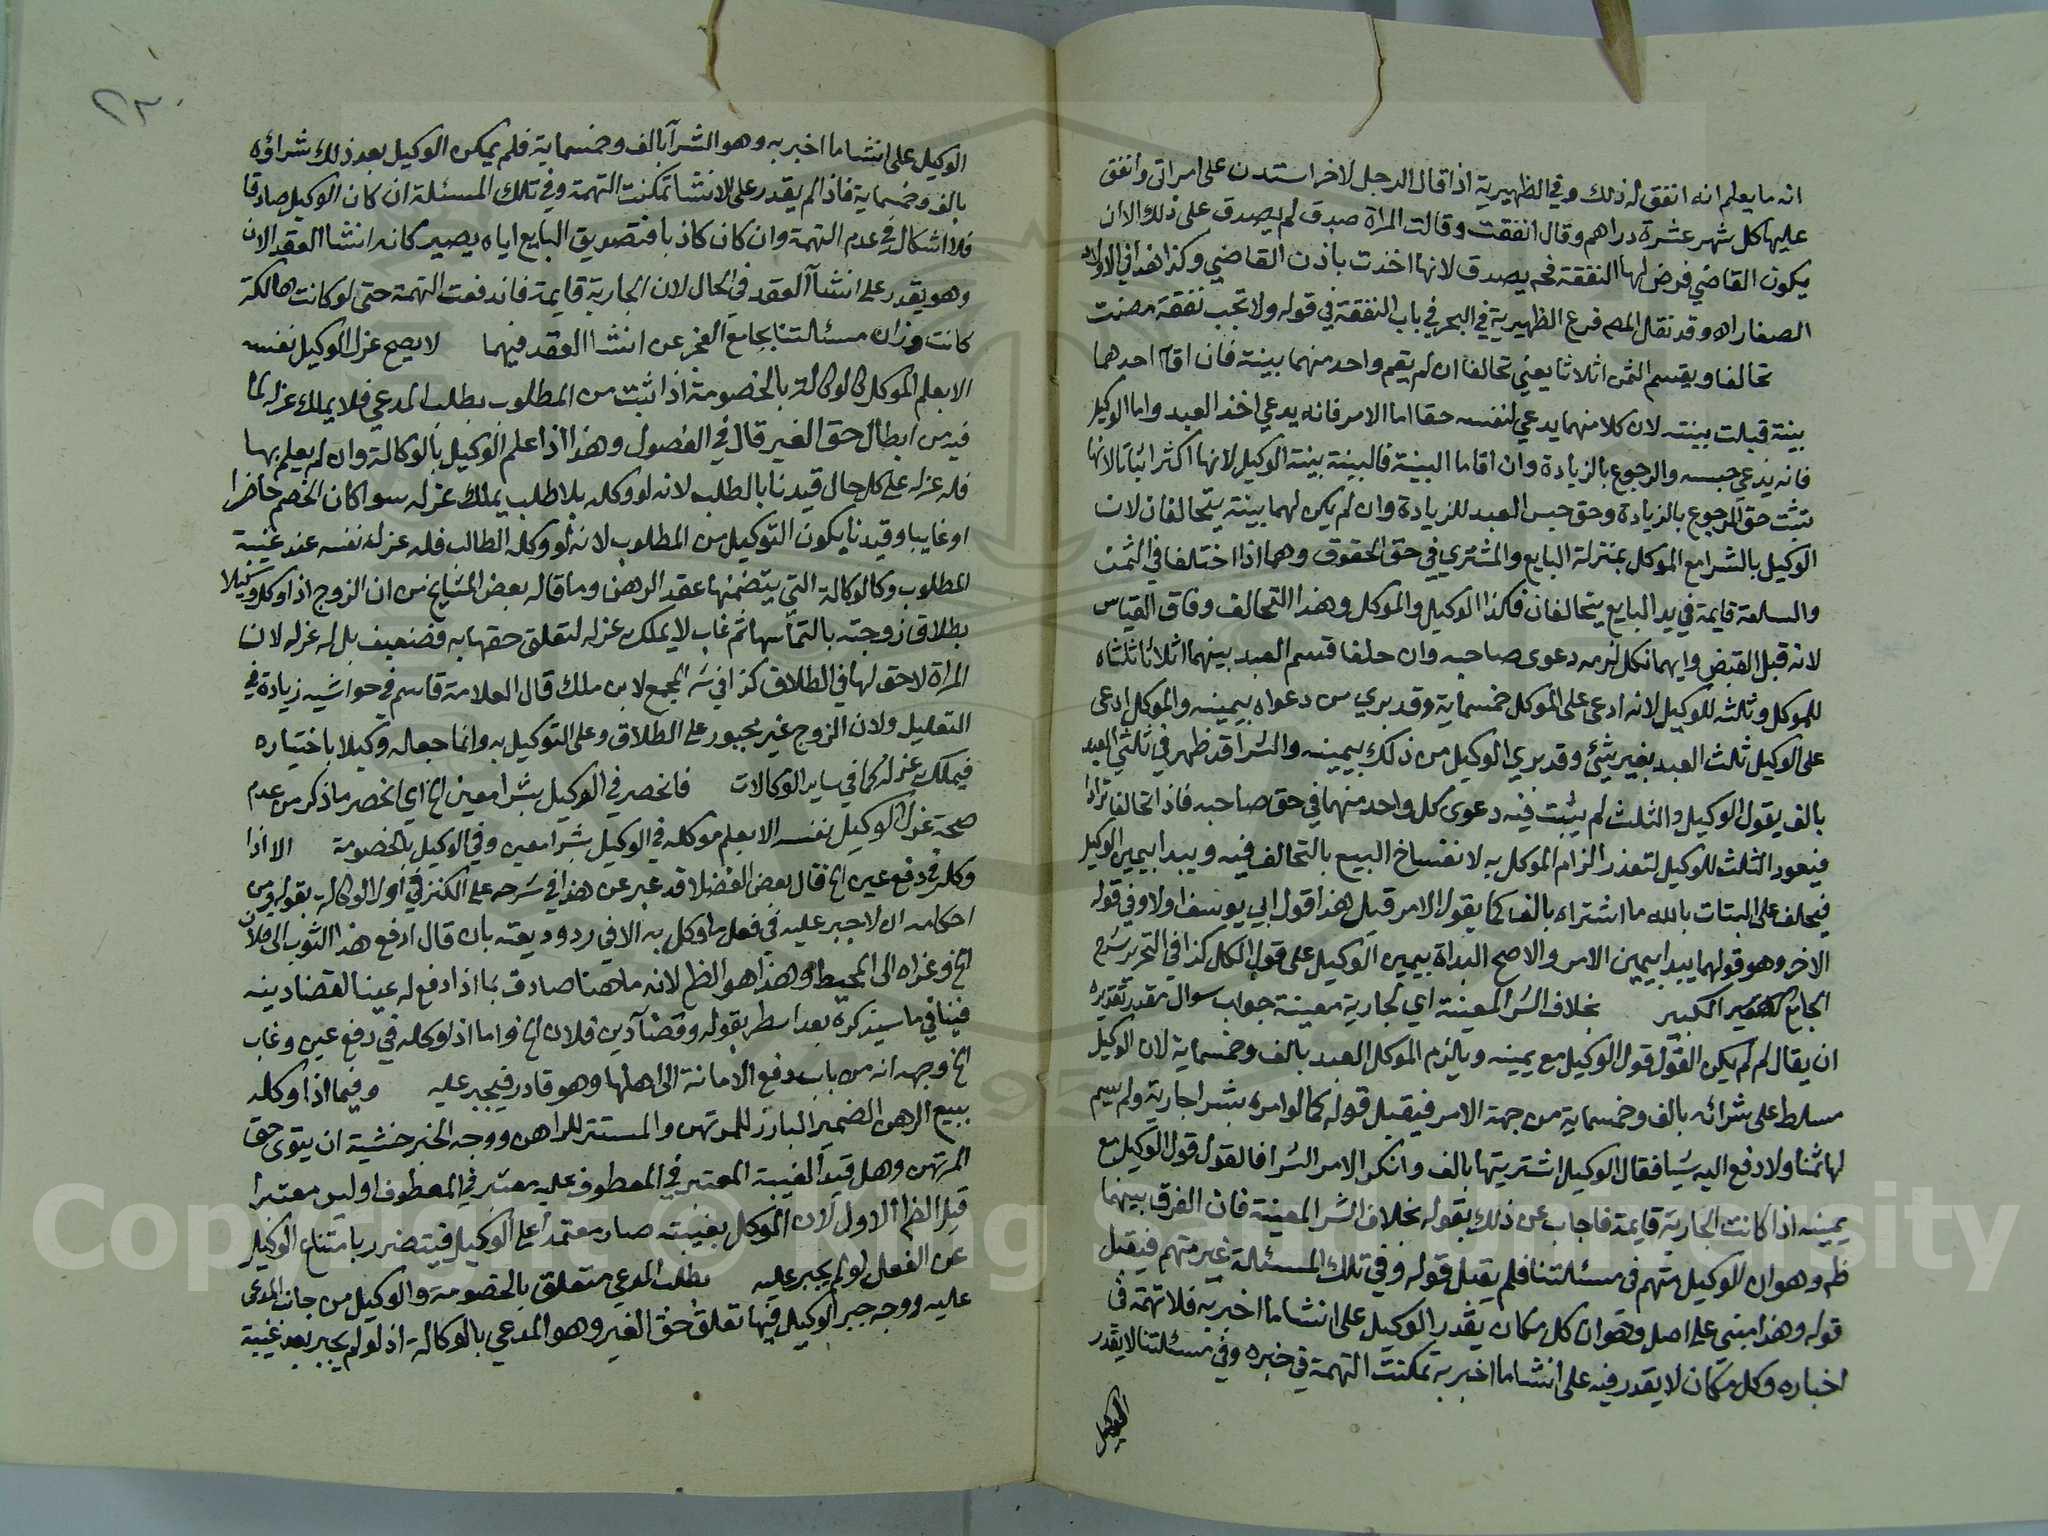 انه ما يعلم انه انفق له ذلك وفي الظهيرية اذا قال الرجل لاخر استدن على امراتي وانفق
عليها كل شهر عشرة دراهم وقال انفقت وقالت المراة صدق لم يصدق على ذلك الا ان
يكون القاضي فرض لها النفقة فح يصدق لانها اخذت باذن القاضي وكذا هذا في الاولاد
الصغار اه وقد نقل المص فرع الظهيرية في البحر في باب النفقة في قوله ولا تجب نفقة مضت
تحالفا ويقسم الثمن اثلاثا يعني تحالفا ان لم يقم واحد منهما بينة فان اقام احدهما
بينة قبلت بينته لان كلا منهما يدعي لنفسه حقا اما الامر فانه يدعي اخذ العبد واما الوكيل
فانه يدعي حبسه والرجوع بالزيادة وان اقاما البينة فالبينة بينة الوكيل لانها اكثر اثباتا لانها
تثبت حق الرجوع بالزيادة وحق حبس العبد للزيادة وان لم يكن لهما بينة يتحالفان لان
الوكيل بالشرا مع الموكل بمنزلة البايع والمشتري في حق الحقوق وهما اذا اختلفا في الثمن
والسلعة قايمة في يد البايع يتحالفان فكذا الوكيل والموكل وهذا التحالف وفاق القياس
لانه قبل القبض وايهما نكل لزمه دعوى صاحبه وان حلفا قسم العبد بينهما اثلاثا ثلثاه
للموكل وثلثه للوكيل لانه ادعى على الموكل خمسماية وقد بري من دعواه بيمينه والموكل ادعى
على الوكيل ثلث العبد بغير شيئ وقد بري الوكيل من ذلك بيمينه والشرا قد ظهر في ثلثي العبد
بالف يقول الوكيل والثلث لم يثبت فيه دعوى كل واحد منهما في حق صاحبه فاذا تحالفا ترادا
فيعود الثلث للوكيل لتعذر الزام الموكل به لانفساخ البيع بالتحالف فيه ويبدا بيمين الوكيل
فيحلف على البتات بالله ما اشتراه بالف كما يقول الامر قيل هذا قول ابي يوسف اولا وفي قوله
الاخر وهو قولهما يبدا بيمين الامر والاصح البداة بيمين الوكيل على قول الكل كذا في التحرير شرح
الجامع الكبير بخلاف الشرا لمعينة اي لجارية معينة جواب سوال مقدر تقديره
ان يقال لم لم يكن القول قول الوكيل مع يمينه ويلزم الموكل العبد بالف وخمسماية لان الوكيل
مسلط على شرائه بالف وخمسماية من جهة الامر فيقبل قوله كما لو امره بشرا جارية ولم يسم
لها ثمنا ولا دفع اليه شيا فقال الوكيل اشتريتها بالف وانكر الامر الشرا فالقول قول الوكيل مع
يمينه اذا كانت الجارية قايمة فاجاب عن ذلك بقوله بخلاف الشرا لمعينة فان الفرق بينهما
ظ وهو ان الوكيل متهم في مسئلتنا فلم يقبل قوله وفي تلك المسئلة غير متهم فيقبل
قوله وهذا مبني على اصل وهو ان كل مكان يقدر الوكيل على انشا ما اخبر به فلا تهمة في
اخباره وكل مكان لا يقدر فيه على انشا ما اخبر به تمكنت التهمة في خبره وفي مسئلتنا لا يقدر
الوكيل
الوكيل على انشا ما اخبر به وهو الشرآ بالف وخمسماية فلم يمكن الوكيل بعد ذلك شراؤه
بالف وخمسماية فاذا لم يقدر على الانشا تمكنت التهمة وفي تلك المسئلة ان كان الوكيل صادقا
فلا اشكال في عدم التهمة وان كان كاذبا فتصديق البايع اياه يصير كانه انشا العقد الان
وهو يقدر على انشآ العقد في الحال لان الجارية قايمة فاندفعت التهمة حتى لو كانت هالكة
كانت وزان مسئلتنا بجامع العجز عن انشا العقد فيهما لا يصح عزل الوكيل نفسه
الا بعلم الموكل كالوكالة بالخصومة اذا ثبت من المطلوب بطلب المدعي فلا يملك عزله لما
فيه من ابطال حق الغير قال في الفصول وهذا اذا علم الوكيل بالوكالة وان لم يعلم بها
فله عزله على كل حال قيدنا بالطلب لانه لو وكله بلا طلب يملك عزله سوا كان الخصم حاضرا
او غايبا وقيدنا بكون التوكيل من المطلوب لانه لو وكله الطالب فله عزله نفسه عند غيبة
المطلوب وكالوكالة التي يتضمنها عقد الرهن وما قاله بعض المشايخ من ان الزوج اذا وكل وكيلا
بطلاق زوجته بالتماسها ثم غاب لا يملك عزله لتعلق حقها به فضعيف بل له عزله لان
المراة لا حق لها في الطلاق كذا في شر المجمع لابن ملك قال العلامة قاسم في حواشيه زيادة في
التعليل ولان الزوج غير مجبور على الطلاق وعلى التوكيل به وانما جعله وكيلا باختياره
فيملك عزله كما في ساير الوكالات فانحصر في الوكيل بشرا معين الخ اي انحصر ما ذكر من عدم
صحة عزل الوكيل نفسه الا بعلم موكله في الوكيل بشرا معين وفي الوكيل بالخصومة الا اذا
وكله في دفع عين الخ قال بعض الفضلا قد عبر عن هذا في شرحه على الكنز في اول الوكالة بقوله ومن
احكامه ان لا جبر عليه في فعل ما وكل به الا في رد وديعة بان قال ادفع هذا الثوب الى فلان
الخ وعزاه الى المحيط وهذا هو الظ لانه ما هنا صادق بما اذا دفع له عينا لقضا دينه
فينافي ما سيذكره بعد اسطر بقوله وقضآ دين فلان الخ واما اذا وكله في دفع عين وغاب
الخ وجهه انه من باب دفع الامانة الى اهلها وهو قادر فيجبر عليه وفيما اذا وكله
ببيع الرهن الضمير البارز للمرتهن والمستتر للراهن ووجه الجبر خشية ان يتوى حق
المرتهن وهل قيد الغيبة المعتبر في المعطوف عليه معتبر في المعطوف او ليس معتبرا
قيل الظ الاول لان الموكل بغيبته صار معتمدا على الوكيل فيتضرر بامتناع الوكيل
عن الفعل لو لم يجبر عليه بطلب المدعي متعلق بالخصومة والوكيل من جانب المدعى
عليه ووجه جبر الوكيل فيها تعلق حق الغير وهو المدعي بالوكالة اذ لو لم يجبر بعد غيبة
Copyright © King Saud University